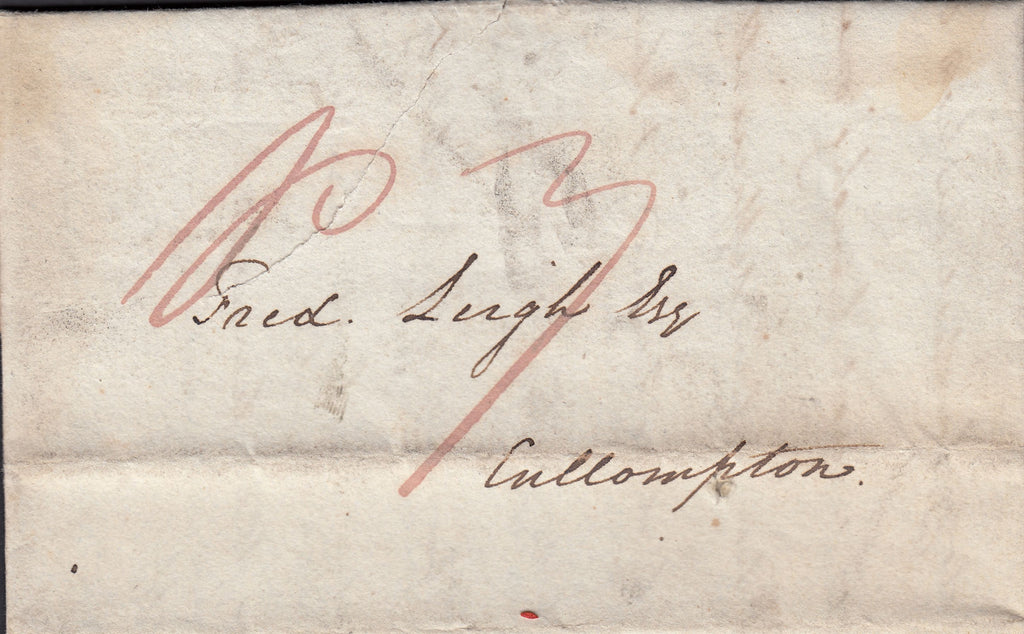 P 3
Fred. Leigh Esq
Cullompton.